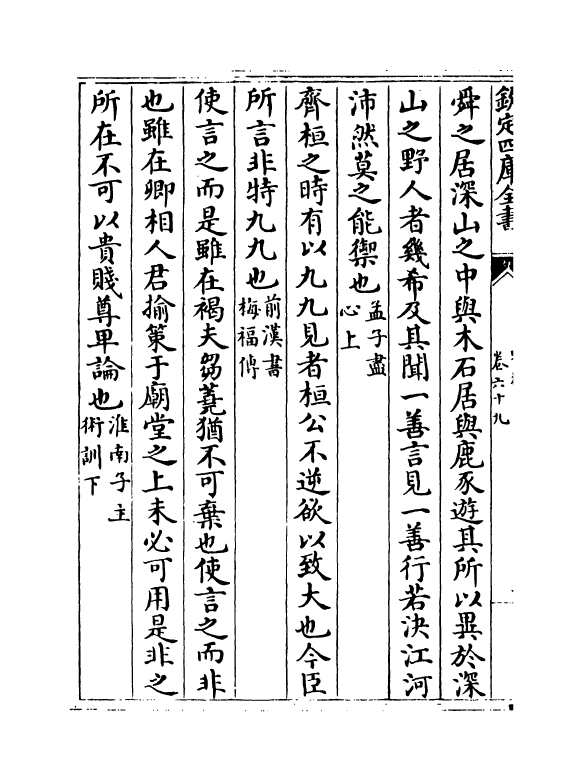 欽定四庫全書
卷六十九
舜之居深山之中與木石居與鹿豕遊其所以異於深
山之野人者幾希及其聞一善言見一善行若決江河
沛然莫之能禦也孟子盡心上
齊桓之時有以九九見者桓公不逆欲以致大也今臣
所言非特九九也前漢書梅福傳
使言之而是雖在褐夫芻蕘猶不可棄也使言之而非
也雖在卿相人君揄策于廟堂之上未必可用是非之
所在不可以貴賤尊卑論也淮南子主術訓下